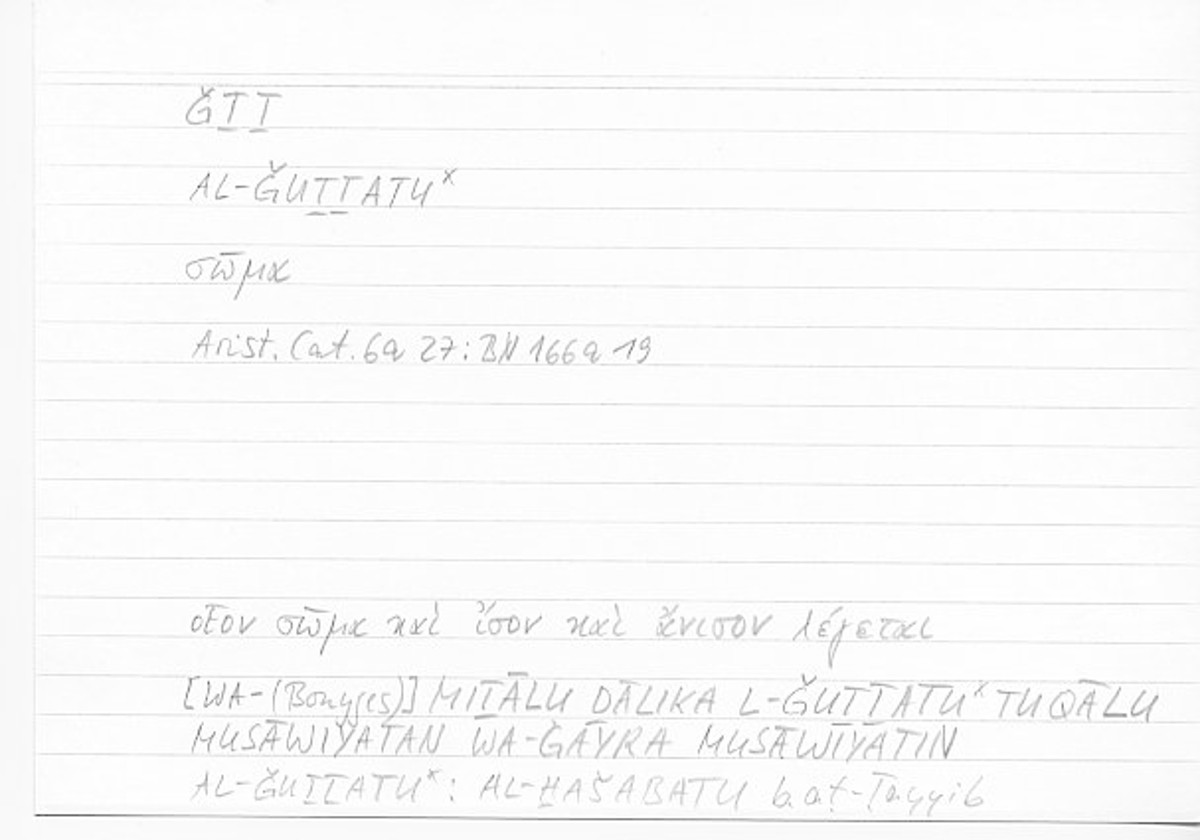 ǦṮṮ
AL-ǦUṮṮATUˣ
σῶμα
Arist. Cat. 6a 27: BN 166a 19
οἷον σῶμα καὶ ἴσον καὶ ἄνισον λέγεται
[WA-(Bouyges)] MIṮĀLU DĀLIKA L-ǦUṮṮATUˣ TUQĀLU
MUSĀWIYATAN WA-ĠAYRA MUSĀWIYATIN
AL-ǦUṮṮATUˣ: AL-ḪAŠABATU b. aṭ-Ṭayyib